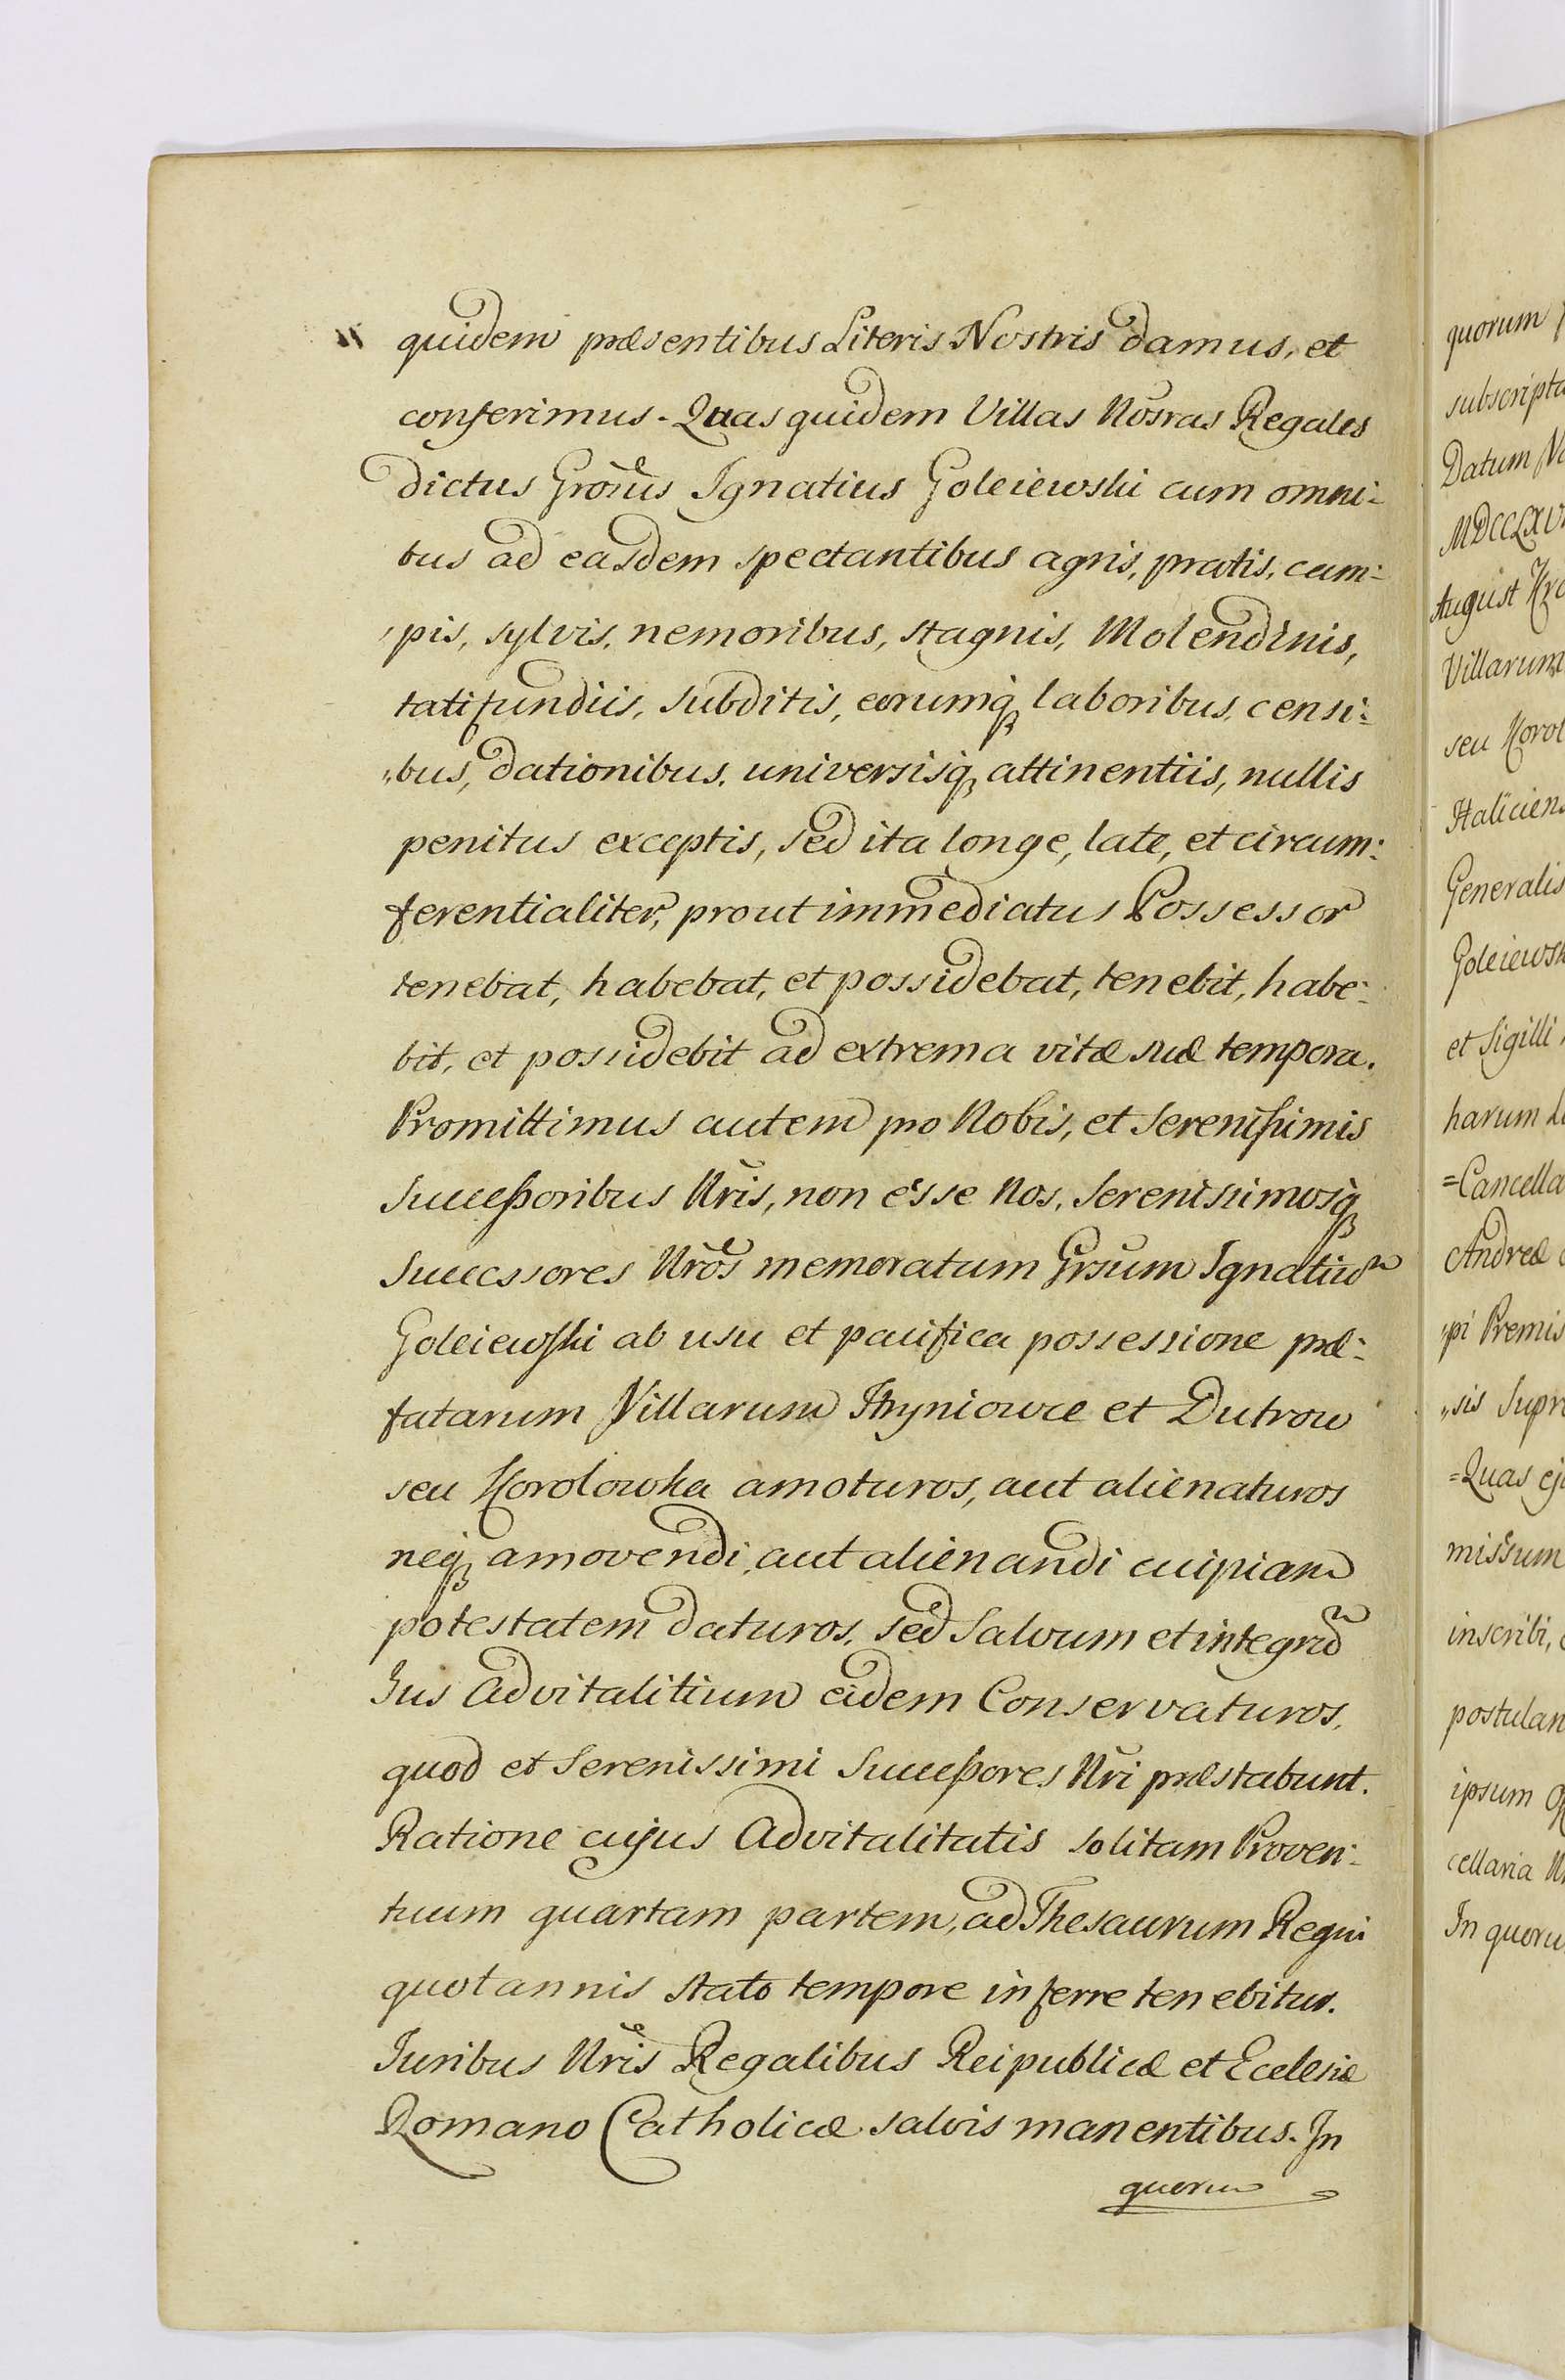 quidem præsentibus Literis Nostris damus, et
conferimus. Quas quidem Villas Nosras Regales
dictus Grosus Ignatius Goleiewski cum omni=
bus ad easdem spectantibus agris, pratis, cam=
pis, sylvis, nemoribus, stagnis, Molendinis,
tatifundiis, subditis, eorumq laboribus, censi=
„bus, dationibus, universisq attinentiis, nullis
penitus exceptis, sed ita longe, late, et circum=
ferentialiter, prout immediatus Possessor
tenebat, habebat, et possidebat, tenebit, habe=
bit, et possidebit ad extrema vitæ suæ tempora.
Promittimus autem pro Nobis, et Serenissimis
Successoribus Nris, non esse Nos, Serenissimosq
Successores Nros memoratum Grsum Ignatium
Goleiewski ab usu et pacifica possessione præ=
fatarum Villarum Thyniowce et Dutrow
seu Korolowka amoturos, aut alienaturos
neq amovendi, aut alienandi cuipiam
potestatem daturos, sed Salvum et integrum
Jus Advitalitium eidem Conservaturos,
quod et Serenissimi Successores Nri præstabunt.
Ratione cujus Advitalitatis solitam Proven=
tuum quartam partem, ad Thesaurum Regni
quotannis stato tempore inferre tenebitur.
Juribus Nris Regalibus Reipublicæ et Ecclesiæ
Romano Catholicæ salvis manentibus. In
quorum
quorum
subscripta
Datum
MDCCLXV
August
Villarum
seu Korol
Haliciens
Generalis
Goleiewsk
et Sigilli
harum
=Cancella
Andreæ
„pi Premis
„sis Supr
=Quas ej
missum
inscribi,
postulan
ipsum
cellaria
In quoru